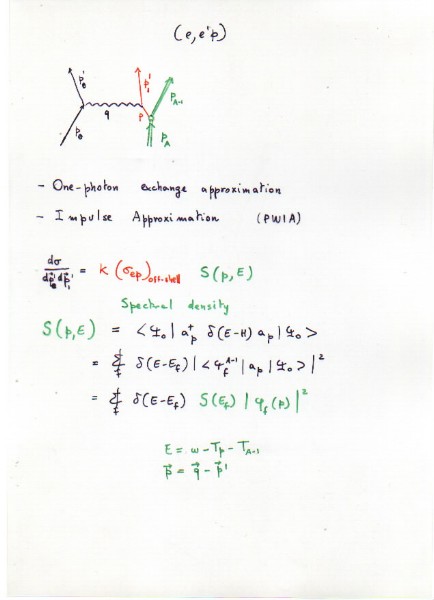 (e,e'p)
p'e p'1 pA-1
q p
pe pA
- One-photon exchange approximation
- Impulse Approximation (PWIA)
dσ/dp⃗'e dp⃗'1 = K (σep)off-shell S(p,E)
Spectral density
S(p,E) = <Ψ0| a†p δ(E-H) ap |Ψ0>
= Σf δ(E-Ef) |<Ψf^A-1| ap |Ψ0>|²
= Σf δ(E-Ef) S(Ef) |φf(p)|²
E = ω - Tp - TA-1
p⃗ = q⃗ - p⃗'